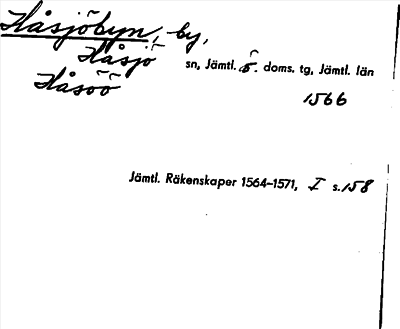 Håsjöbyn, by,
Håsjö sn, Jämtl. ö. doms. tg, Jämtl. län
Håsöö 1566
Jämtl. Räkenskaper 1564–1571, I s. 158